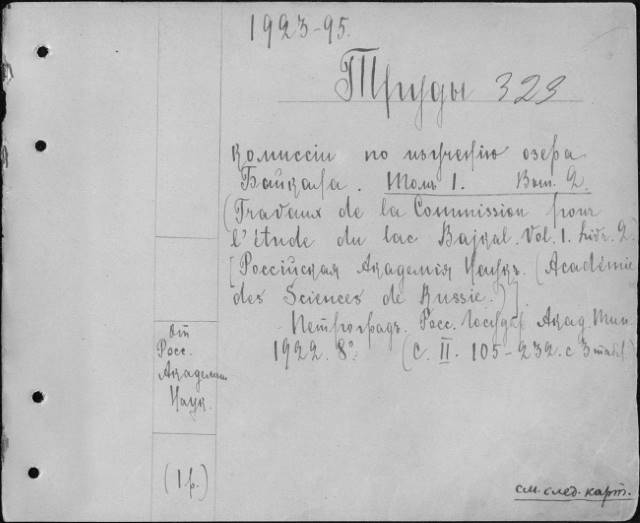 1923-95.
Труды 323
комиссіи по изученію озера
Байкала. Томъ I. Вып. 2.
(Travaux de la Commission pour
l'étude du lac Bajkal. Vol. 1. Livr. 2.
[Россійская Академія Наукъ. (Académie
des Sciences de Russie.)]
Петроградъ. Росс. Госуд. Акад. Тип.
1922. 8° (с. II. 105-232. с 3 табл.)
От
Росс.
Академии
Наук.
(1 р.)
см. след. карт.